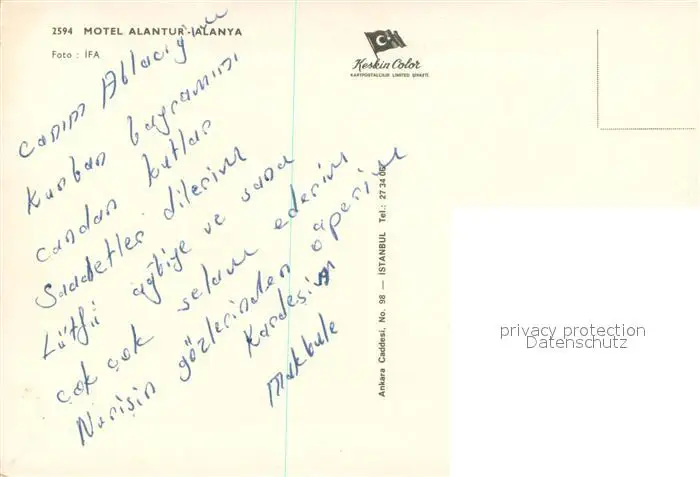 2594 MOTEL ALANTUR-ALANYA
Foto : İFA
Keskin Color
KARTPOSTALCILIK LİMİTED ŞİRKETİ
Canım Ablacığım
Kurban bayramını
candan kutlar
Saadetler dilerim
Lütfü ağbiye ve sana
çok çok selam ederim
Nurişin gözlerinden öperim
Kardeşin
Makbule
Ankara Caddesi, No. 98 — İSTANBUL Tel.: 27 34 06
privacy protection
Datenschutz